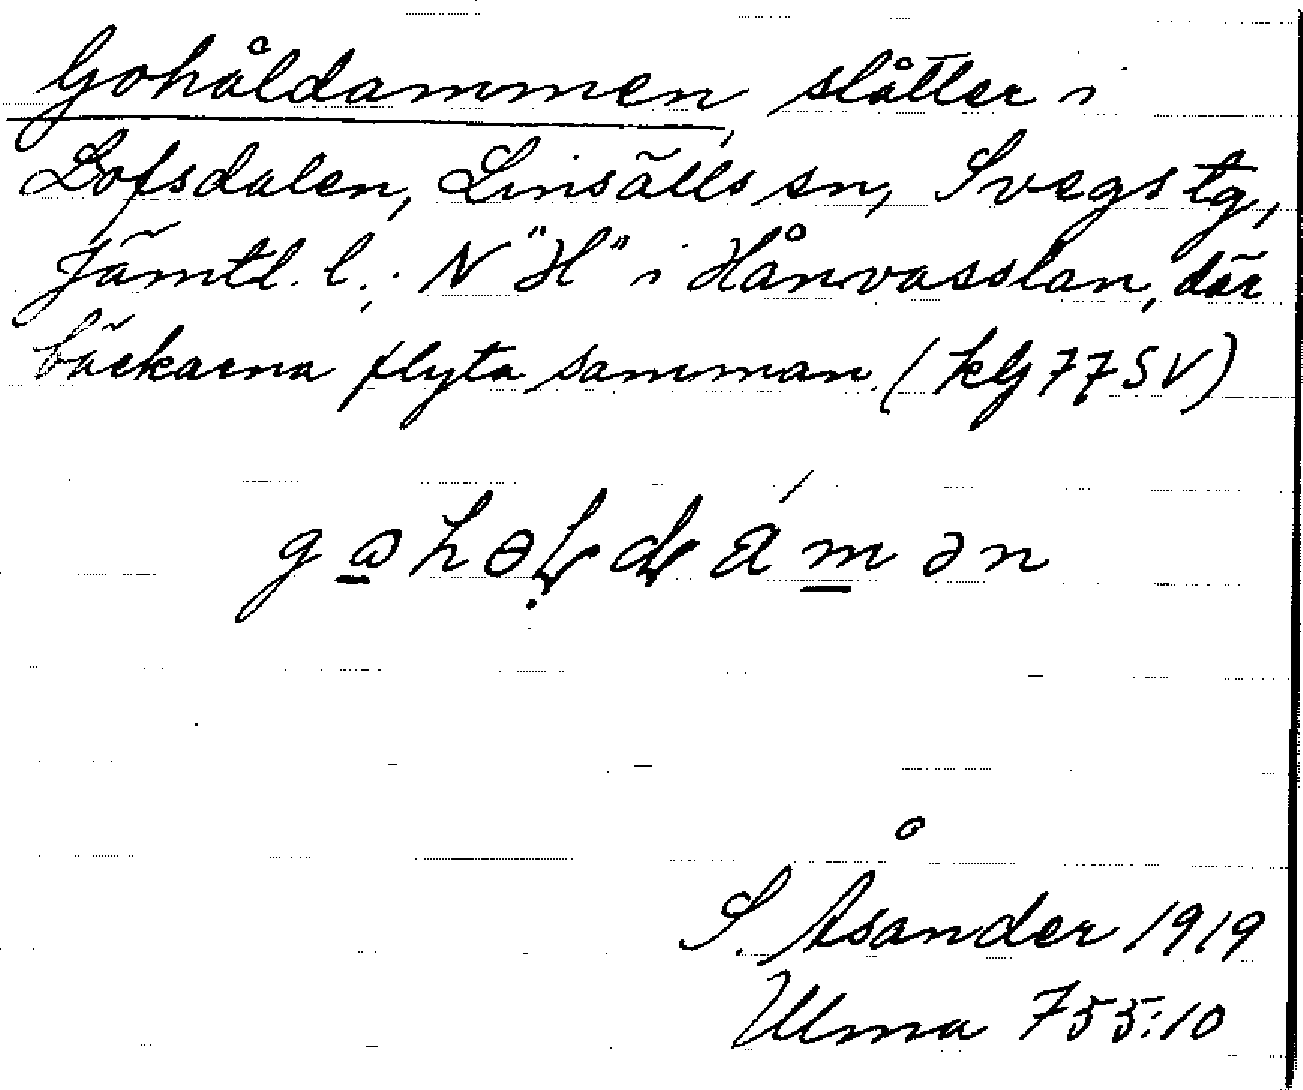 Gohåldammen, slåtter i
Lofsdalen, Linsälls sn, Svegs tg,
Jämtl. l.; N "H" i Hånvasslan, där
bäckarna flyta samman. (kbl 77 SV)
S. Åsander 1919
Ulma 755:10